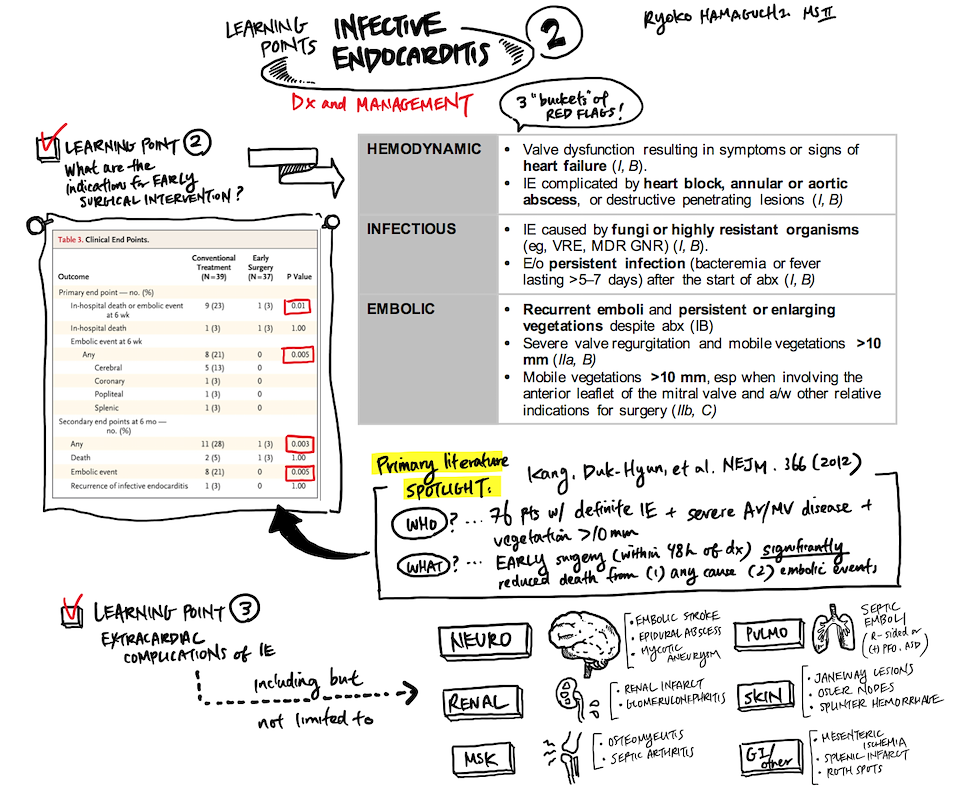 LEARNING POINTS
INFECTIVE ENDOCARDITIS
2
Ryoko HAMAGUCHI MSII
Dx and MANAGEMENT
3 "buckets" of
RED FLAGS!
LEARNING POINT 2
What are the
indications for EARLY
SURGICAL INTERVENTION?
HEMODYNAMIC
• Valve dysfunction resulting in symptoms or signs of
heart failure (I, B).
• IE complicated by heart block, annular or aortic
abscess, or destructive penetrating lesions (I, B)
INFECTIOUS
• IE caused by fungi or highly resistant organisms
(eg, VRE, MDR GNR) (I, B).
• E/o persistent infection (bacteremia or fever
lasting >5–7 days) after the start of abx (I, B)
EMBOLIC
• Recurrent emboli and persistent or enlarging
vegetations despite abx (IB)
• Severe valve regurgitation and mobile vegetations >10
mm (IIa, B)
• Mobile vegetations >10 mm, esp when involving the
anterior leaflet of the mitral valve and a/w other relative
indications for surgery (IIb, C)
Table 3. Clinical End Points.
Outcome Conventional Treatment (N=39) Early Surgery (N=37) P Value
Primary end point — no. (%)
In-hospital death or embolic event at 6 wk 9 (23) 1 (3) 0.01
In-hospital death 1 (3) 1 (3) 1.00
Embolic event at 6 wk
Any 8 (21) 0 0.005
Cerebral 5 (13) 0
Coronary 1 (3) 0
Popliteal 1 (3) 0
Splenic 1 (3) 0
Secondary end points at 6 mo — no. (%)
Any 11 (28) 1 (3) 0.003
Death 2 (5) 1 (3) 1.00
Embolic event 8 (21) 0 0.005
Recurrence of infective endocarditis 1 (3) 0 1.00
Primary literature
SPOTLIGHT:
Kang, Duk-Hyun, et al. NEJM. 366 (2012)
WHO? ... 76 pts w/ definite IE + severe AV/MV disease +
vegetation >10mm
WHAT? ... EARLY surgery (within 48h of dx) significantly
reduced death from (1) any cause (2) embolic events
LEARNING POINT 3
EXTRACARDIAC
COMPLICATIONS of IE
including but
not limited to
NEURO
• EMBOLIC STROKE
• EPIDURAL ABSCESS
• MYCOTIC
ANEURYSM
PULMO
SEPTIC
EMBOLI
(R-sided or
(+) PFO, ASD)
RENAL
• RENAL INFARCT
• GLOMERULONEPHRITIS
SKIN
• JANEWAY LESIONS
• OSLER NODES
• SPLINTER HEMORRHAGE
MSK
• OSTEOMYELITIS
• SEPTIC ARTHRITIS
GI/other
• MESENTERIC
ISCHEMIA
• SPLENIC INFARCT
• ROTH SPOTS